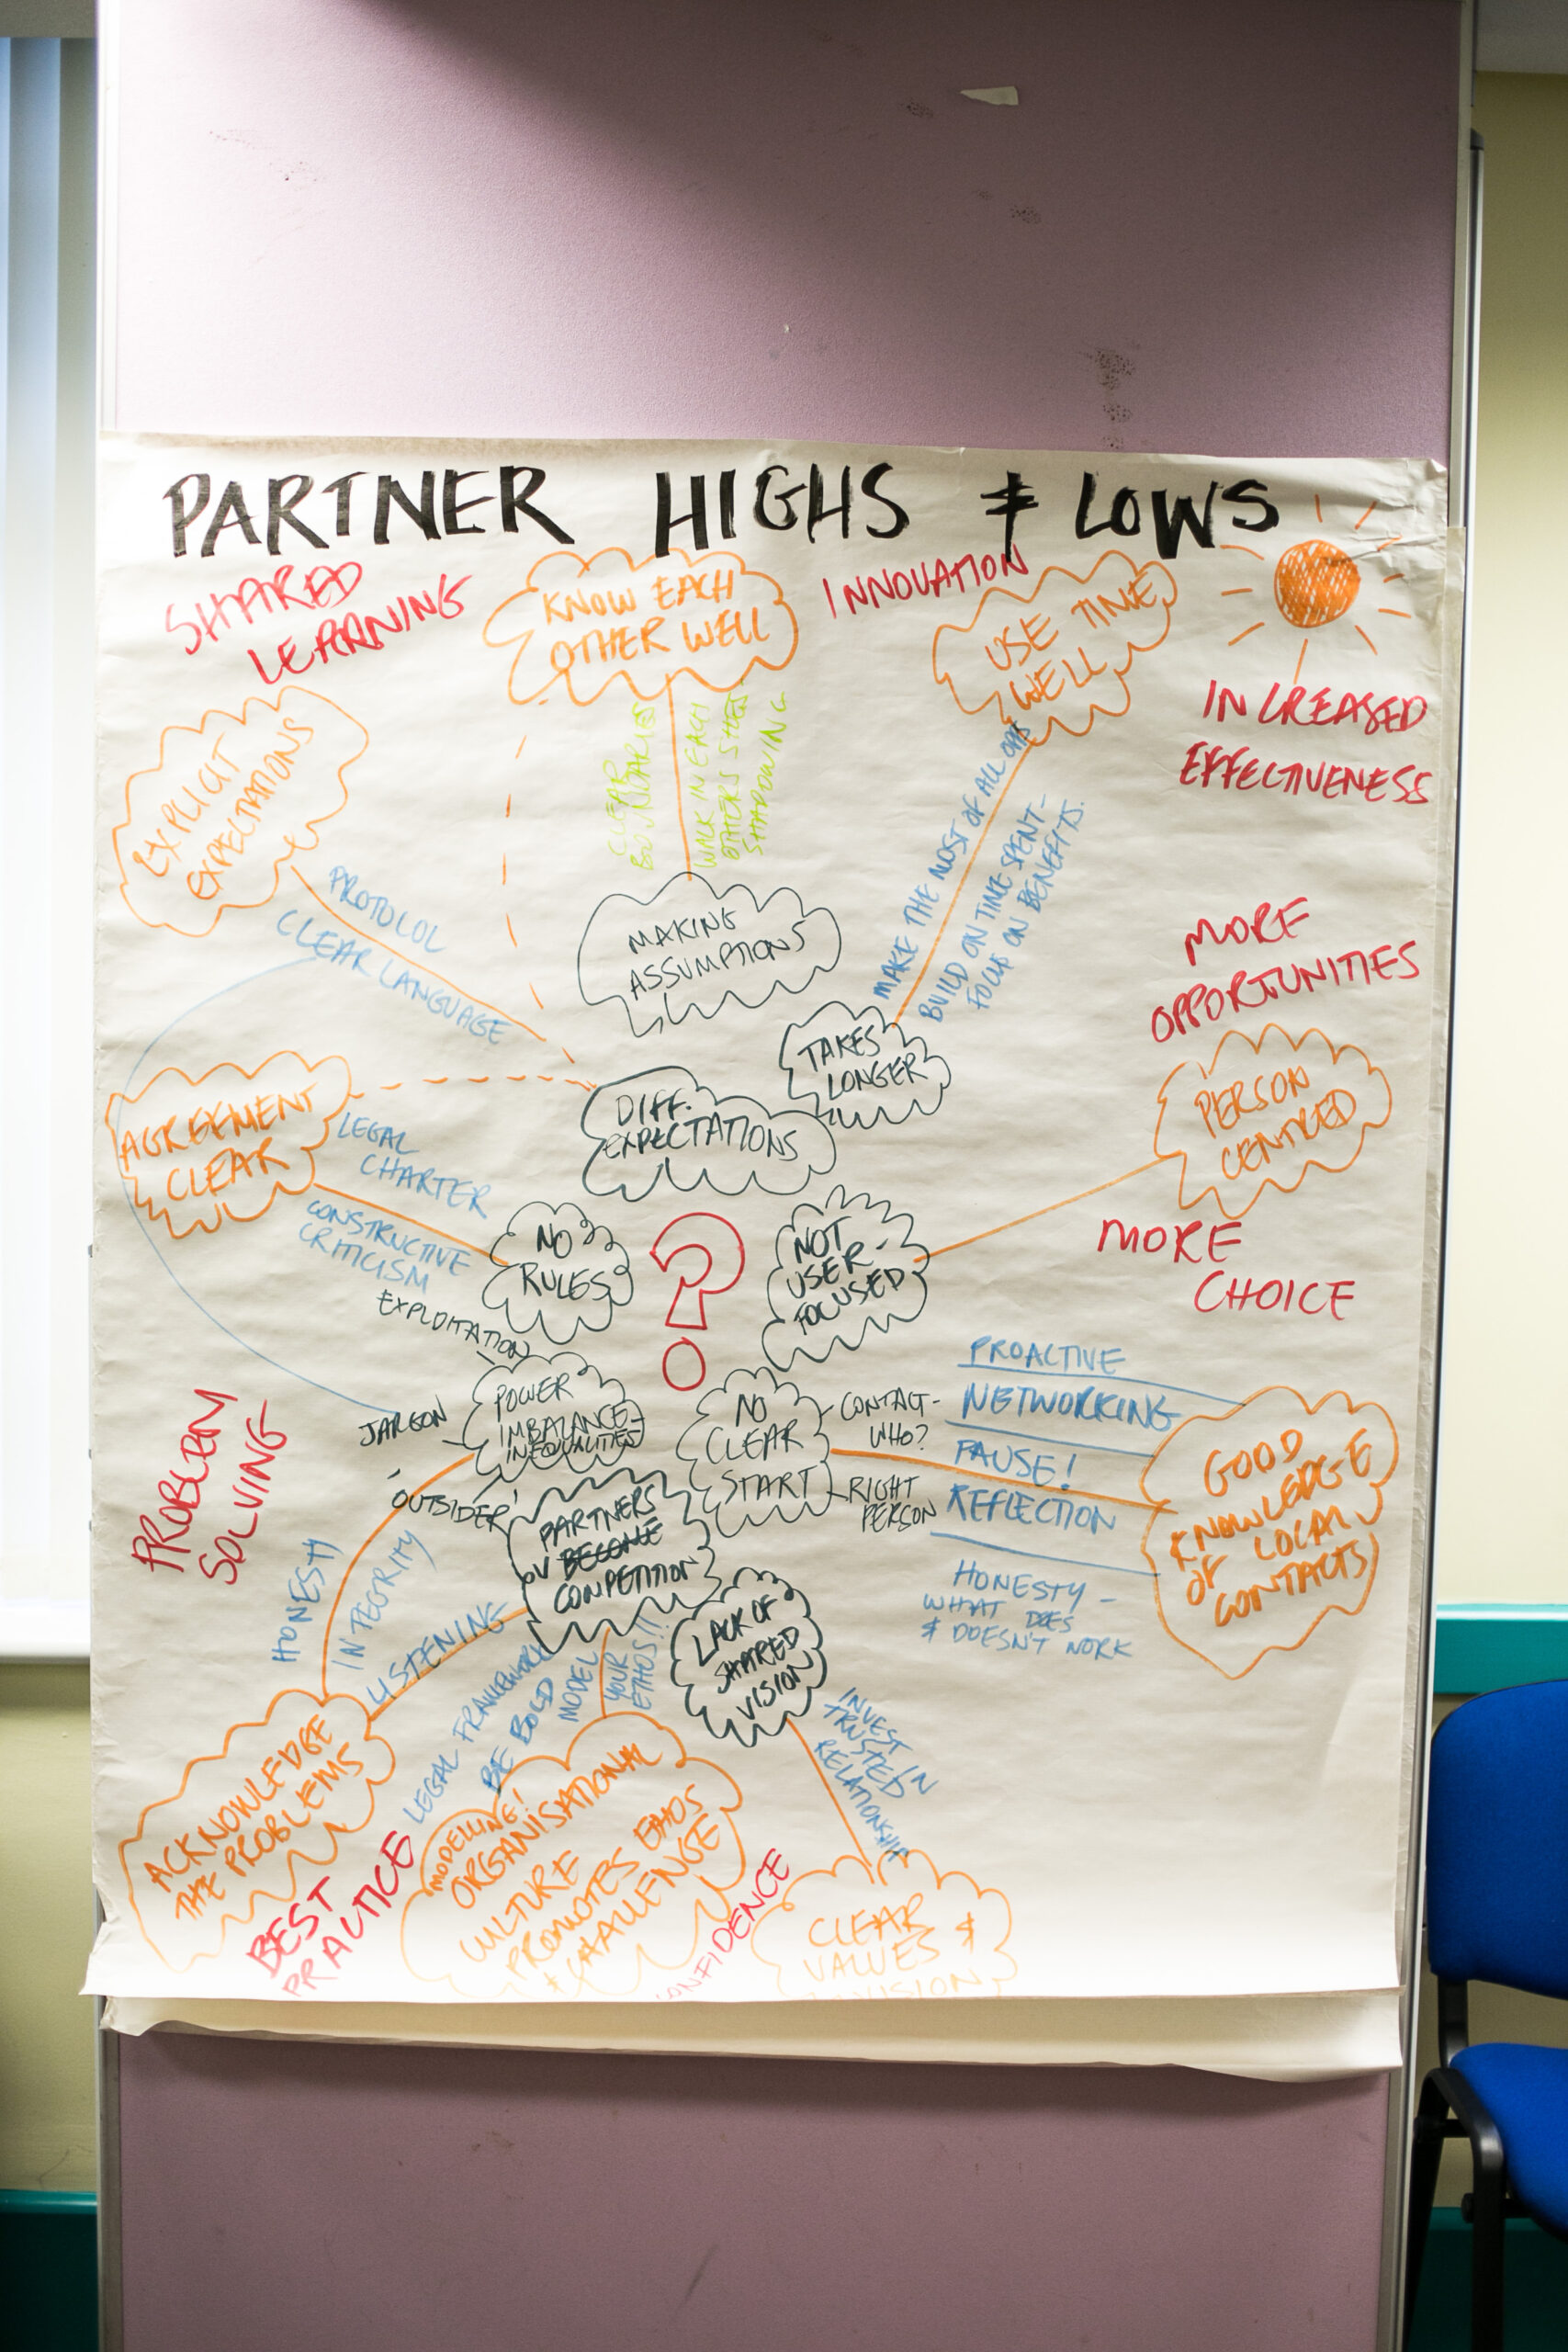 PARTNER HIGHS & LOWS
SHARED
LEARNING
KNOW EACH
OTHER WELL
INNOVATION
USE TIME
WELL
INCREASED
EFFECTIVENESS
EXPLICIT
EXPECTATIONS
CLEAR
BOUNDARIES
WALK IN EACH
OTHERS SHOES
SHADOWING
MAKE THE MOST OF ALL OPPS
BUILD ON TIME SPENT-
FOCUS ON BENEFITS.
PROTOCOL
CLEAR LANGUAGE
MAKING
ASSUMPTIONS
MORE
OPPORTUNITIES
TAKES
LONGER
DIFF.
EXPECTATIONS
AGREEMENT
CLEAR
LEGAL
CHARTER
CONSTRUCTIVE
CRITICISM
PERSON
CENTRED
NO
RULES
?
NOT
USER-
FOCUSED
MORE
CHOICE
EXPLOITATION
JARGON
OUTSIDER
POWER
IMBALANCE-
INEQUALITIES
NO
CLEAR
START
CONTACT-
WHO?
RIGHT
PERSON
PROACTIVE
NETWORKING
PAUSE!
REFLECTION
HONESTY -
WHAT DOES
& DOESN'T WORK
GOOD
KNOWLEDGE
OF LOCAL
CONTACTS
PROBLEM
SOLVING
PARTNERS
BECOME
COMPETITION
HONESTY
INTEGRITY
LISTENING
LEGAL FRAMEWORK
BE BOLD
MODEL
YOUR
ETHOS!!
LACK OF
SHARED
VISION
INVEST IN
TRUSTED
RELATIONSHIP
ACKNOWLEDGE
THE PROBLEMS
BEST
PRACTICE
MODELLING!
ORGANISATIONAL
CULTURE
PROMOTES ETHOS
& CHALLENGE
CONFIDENCE
CLEAR
VALUES &
VISION